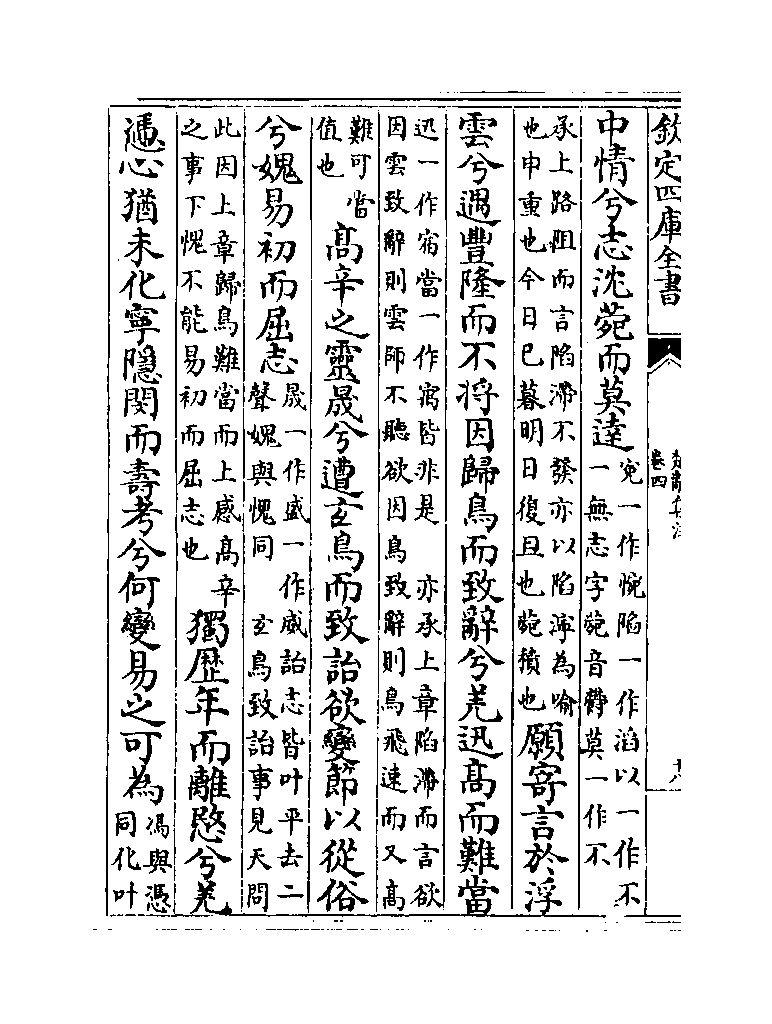 欽定四庫全書
卷四
中情兮志沈菀而莫達
寃一作惋陷一作滔以一作不
一無志字菀音鬱莫一作不
承上路阻而言陷滯不發亦以陷濘為喻
也申重也今日已暮明日復旦也菀積也
願寄言於浮
雲兮遇豐隆而不將因歸鳥而致辭兮羌迅高而難當
迅一作宿當一作寓皆非是 亦承上章陷滯而言欲
因雲致辭則雲師不聽欲因鳥致辭則鳥飛速而又高
難可當
值也
高辛之靈晟兮遭玄鳥而致詒欲變節以從俗
兮媿易初而屈志
晟一作盛一作威詒志皆叶平去二
聲媿與愧同 玄鳥致詒事見天問
此因上章歸鳥難當而上感高辛
之事下愧不能易初而屈志也
獨歷年而離愍兮羌
馮心猶未化寧隱閔而壽考兮何變易之可為
馮與憑
同化叶